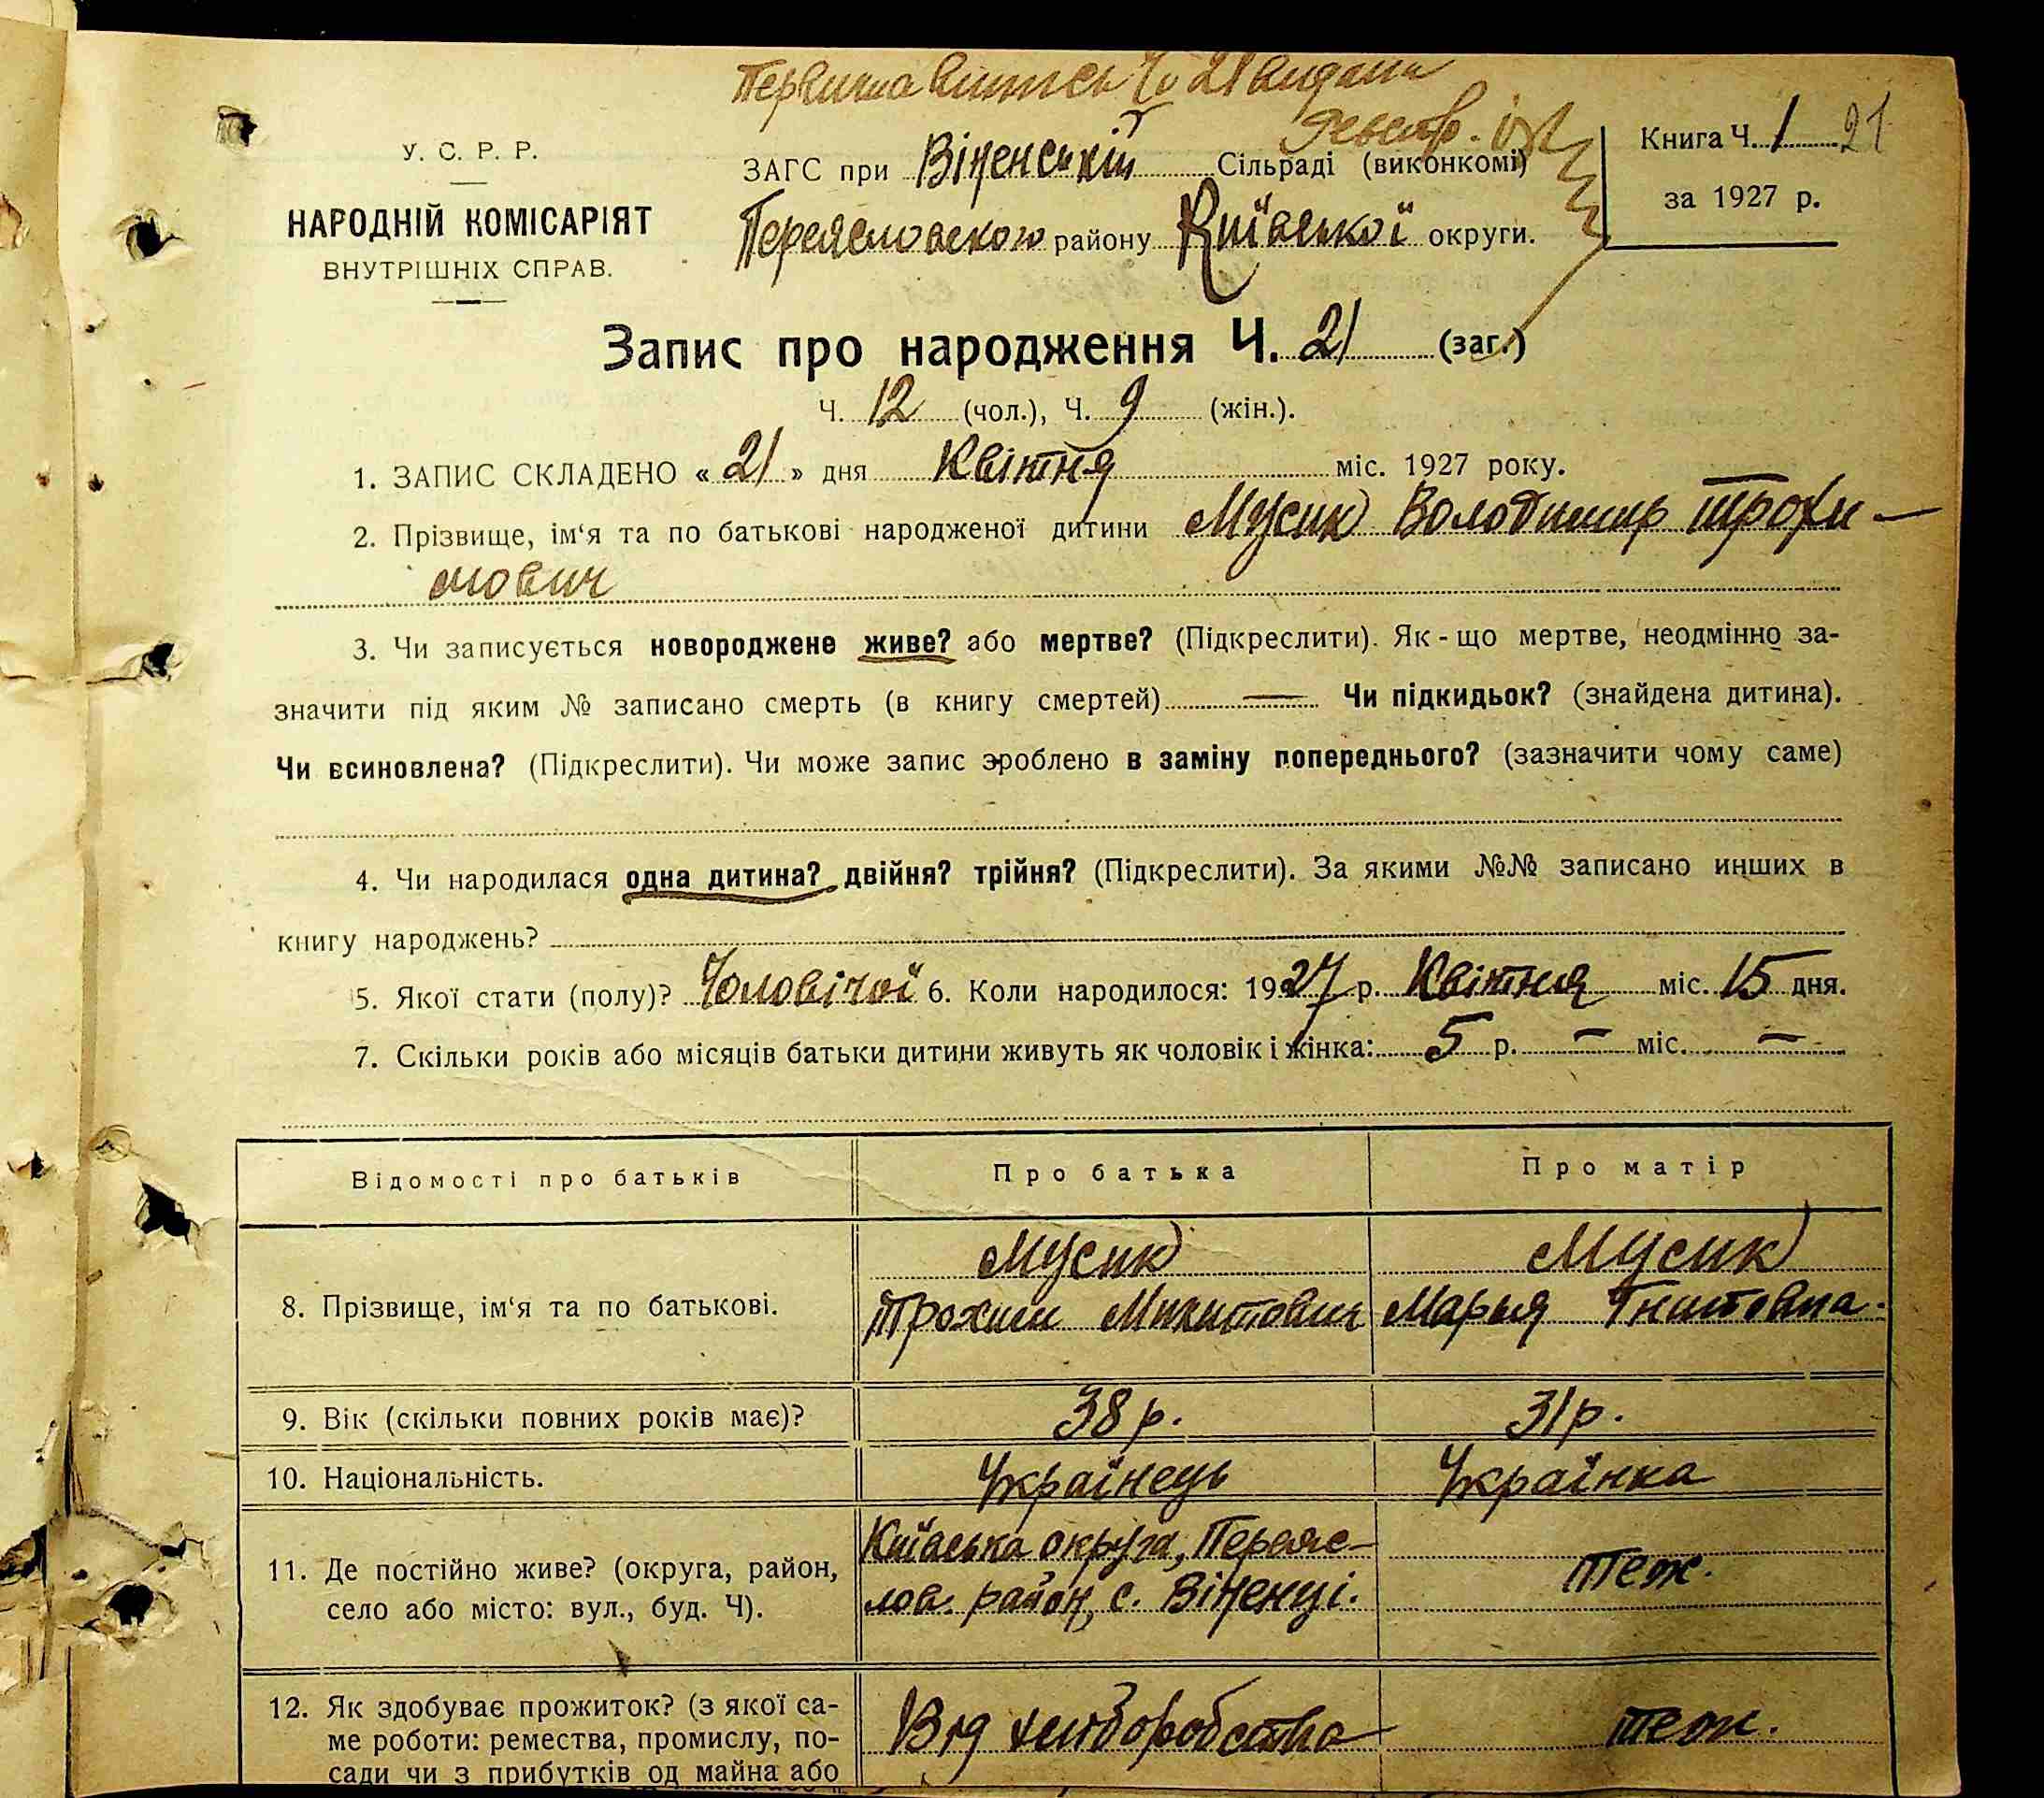 Первична випись Ч. 21 видана
У. С. Р. Р.
НАРОДНІЙ КОМІСАРІЯТ
ВНУТРІШНІХ СПРАВ.
ЗАГС при Віненській Сільраді (виконкомі)
Переяславського району Київської округи.
Книга Ч. 1 21
за 1927 р.
Запис про народження Ч. 21 (заг.)
Ч. 12 (чол.), Ч. 9 (жін.).
1. ЗАПИС СКЛАДЕНО « 21 » дня Квітня міс. 1927 року.
2. Прізвище, ім‘я та по батькові народженої дитини Мусик Володимир Трохи-
мович
3. Чи записується новороджене живе? або мертве? (Підкреслити). Як-що мертве, неодмінно за-
значити під яким № записано смерть (в книгу смертей) — Чи підкидьок? (знайдена дитина).
Чи всиновлена? (Підкреслити). Чи може запис зроблено в заміну попереднього? (зазначити чому саме)
4. Чи народилася одна дитина? двійня? трійня? (Підкреслити). За якими №№ записано инших в
книгу народжень?
5. Якої стати (полу)? Чоловічої 6. Коли народилося: 1927 р. Квітня міс. 15 дня.
7. Скільки років або місяців батьки дитини живуть як чоловік і жінка: 5 р. — міс. —
Відомості про батьків
Про батька
Про матір
8. Прізвище, ім‘я та по батькові.
Мусик
Трохим Микитович
Мусик
Марья Гнатовна.
9. Вік (скільки повних років має)?
38 р.
31 р.
10. Національність.
Українець
Українка
11. Де постійно живе? (округа, район,
село або місто: вул., буд. Ч).
Київська округа, Переяс-
лов. район, с. Віненці.
теж.
12. Як здобуває прожиток? (з якої са-
ме роботи: ремества, промислу, по-
сади чи з прибутків од майна або
Від хліборобства
теж.